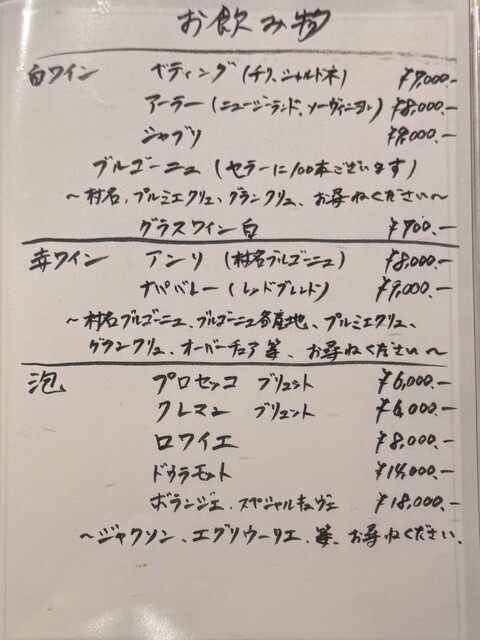 お飲み物
白ワイン ベティング(チリ、シャルドネ) ¥7,000.-
アーラー(ニュージーランド、ソーヴィニヨン) ¥8,000.-
シャブリ ¥8,000.-
ブルゴーニュ(セラーに100本ございます)
~村名、プルミエクリュ、グランクリュ、お尋ねください~
グラスワイン白 ¥900.-
赤ワイン アンリ(村名ブルゴーニュ) ¥8,000.-
ナパバレー(レッドブレンド) ¥9,000.-
~村名ブルゴーニュ、ブルゴーニュ各産地、プルミエクリュ、
グランクリュ、オーパーチュア等、お尋ねください~
泡 プロセッコ ブリュット ¥6,000.-
クレマン ブリュット ¥6,000.-
ロワイエ ¥8,000.-
ドゥラモット ¥14,000.-
ボランジェ.スペシャルキュヴェ ¥18,000.-
~ジャクソン、エグリウーリエ、等、お尋ねください.